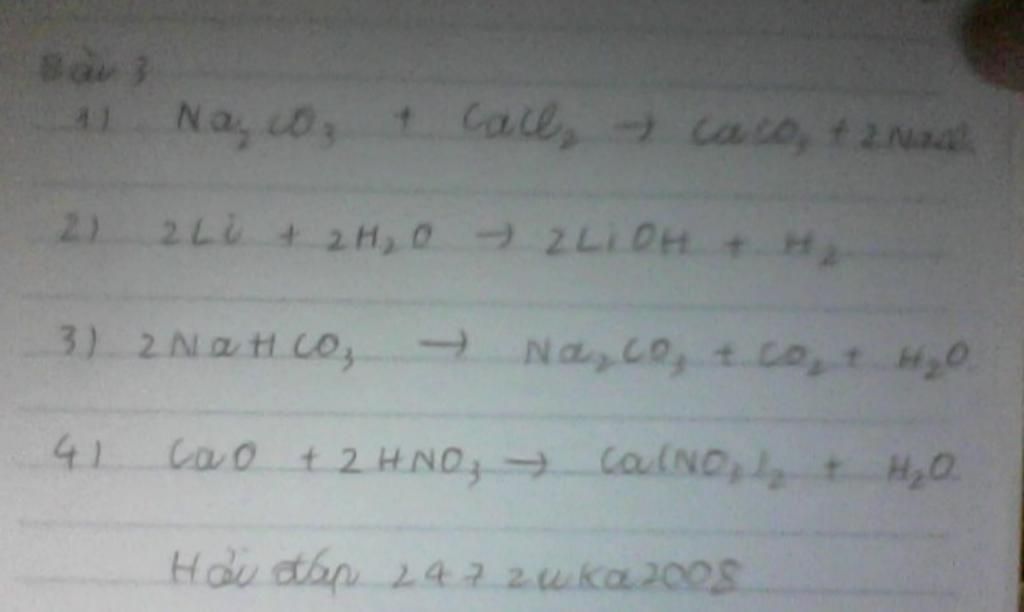 Bài 3
1) Na₂CO₃ + CaCl₂ → CaCO₃ + 2NaCl
2) 2Li + 2H₂O → 2LiOH + H₂
3) 2NaHCO₃ → Na₂CO₃ + CO₂ + H₂O
4) CaO + 2HNO₃ → Ca(NO₃)₂ + H₂O
Hỏi đáp 247 zuka2008